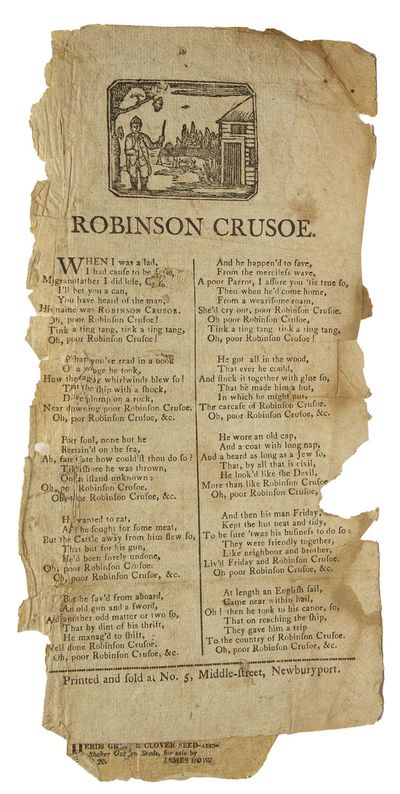 ROBINSON CRUSOE.
WHEN I was a lad,
I had cause to be
My grandfather I did lose,
I'll bet you a can,
You have heard of the man,
His name was ROBINSON CRUSOE.
Oh, poor Robinson Crusoe!
Tink a ting tang, tink a ting tang,
Oh, poor Robinson Crusoe!
What you've read in a book
Of a voyage he took,
How the raging whirlwinds blew so!
That the ship with a shock,
Drove plump on a rock,
Near drowning poor Robinson Crusoe.
Oh, poor Robinson Crusoe, &c.
Poor soul, none but he
Remain'd on the sea,
Ah, fate fate how could'st thou do so?
Till ashore he was thrown,
On an island unknown:
Oh, poor Robinson Crusoe.
Oh, poor Robinson Crusoe, &c.
He wanted to eat,
And he sought for some meat,
But the Cattle away from him flew so,
That but for his gun,
He'd been surely undone,
Oh, poor Robinson Crusoe.
Oh, poor Robinson Crusoe, &c.
But he sav'd from aboard,
An old gun and a sword,
And another odd matter or two so,
That by dint of his thrift,
He manag'd to shift,
Well done Robinson Crusoe.
Oh, poor Robinson Crusoe, &c.
And he happen'd to save,
From the merciless wave,
A poor Parrot, I assure you 'tis true so,
Then when he'd come home,
From a wearisome roam,
She'd cry out, poor Robinson Crusoe.
Oh poor Robinson Crusoe!
Tink a ting tang tink a ting tang,
Oh, poor Robinson Crusoe!
He got all in the wood,
That ever he could,
And stuck it together with glue so,
That he made him a hut,
In which he might put,
The carcase of Robinson Crusoe.
Oh, poor Robinson Crusoe, &c.
He wore an old cap,
And a coat with long nap,
And a beard as long as a Jew so,
That, by all that is civil,
He look'd like the Devil,
More than like Robinson Crusoe
Oh, poor Robinson Crusoe,
And then his man Friday,
Kept the hut neat and tidy,
To be sure 'twas his business to do so:
They were friendly together,
Like neighbour and brother,
Liv'd Friday and Robinson Crusoe.
Oh poor Robinson Crusoe, &c.
At length an English sail,
Came near within hail,
Oh! then he took to his canoe, so,
That on reaching the ship,
They gave him a trip
To the country of Robinson Crusoe.
Oh, poor Robinson Crusoe, &c.
Printed and sold at No. 5, Middle-street, Newburyport.
HERDS CLOVER SEED—ALSO—
Shaker Garden Seeds, for sale by
JAMES